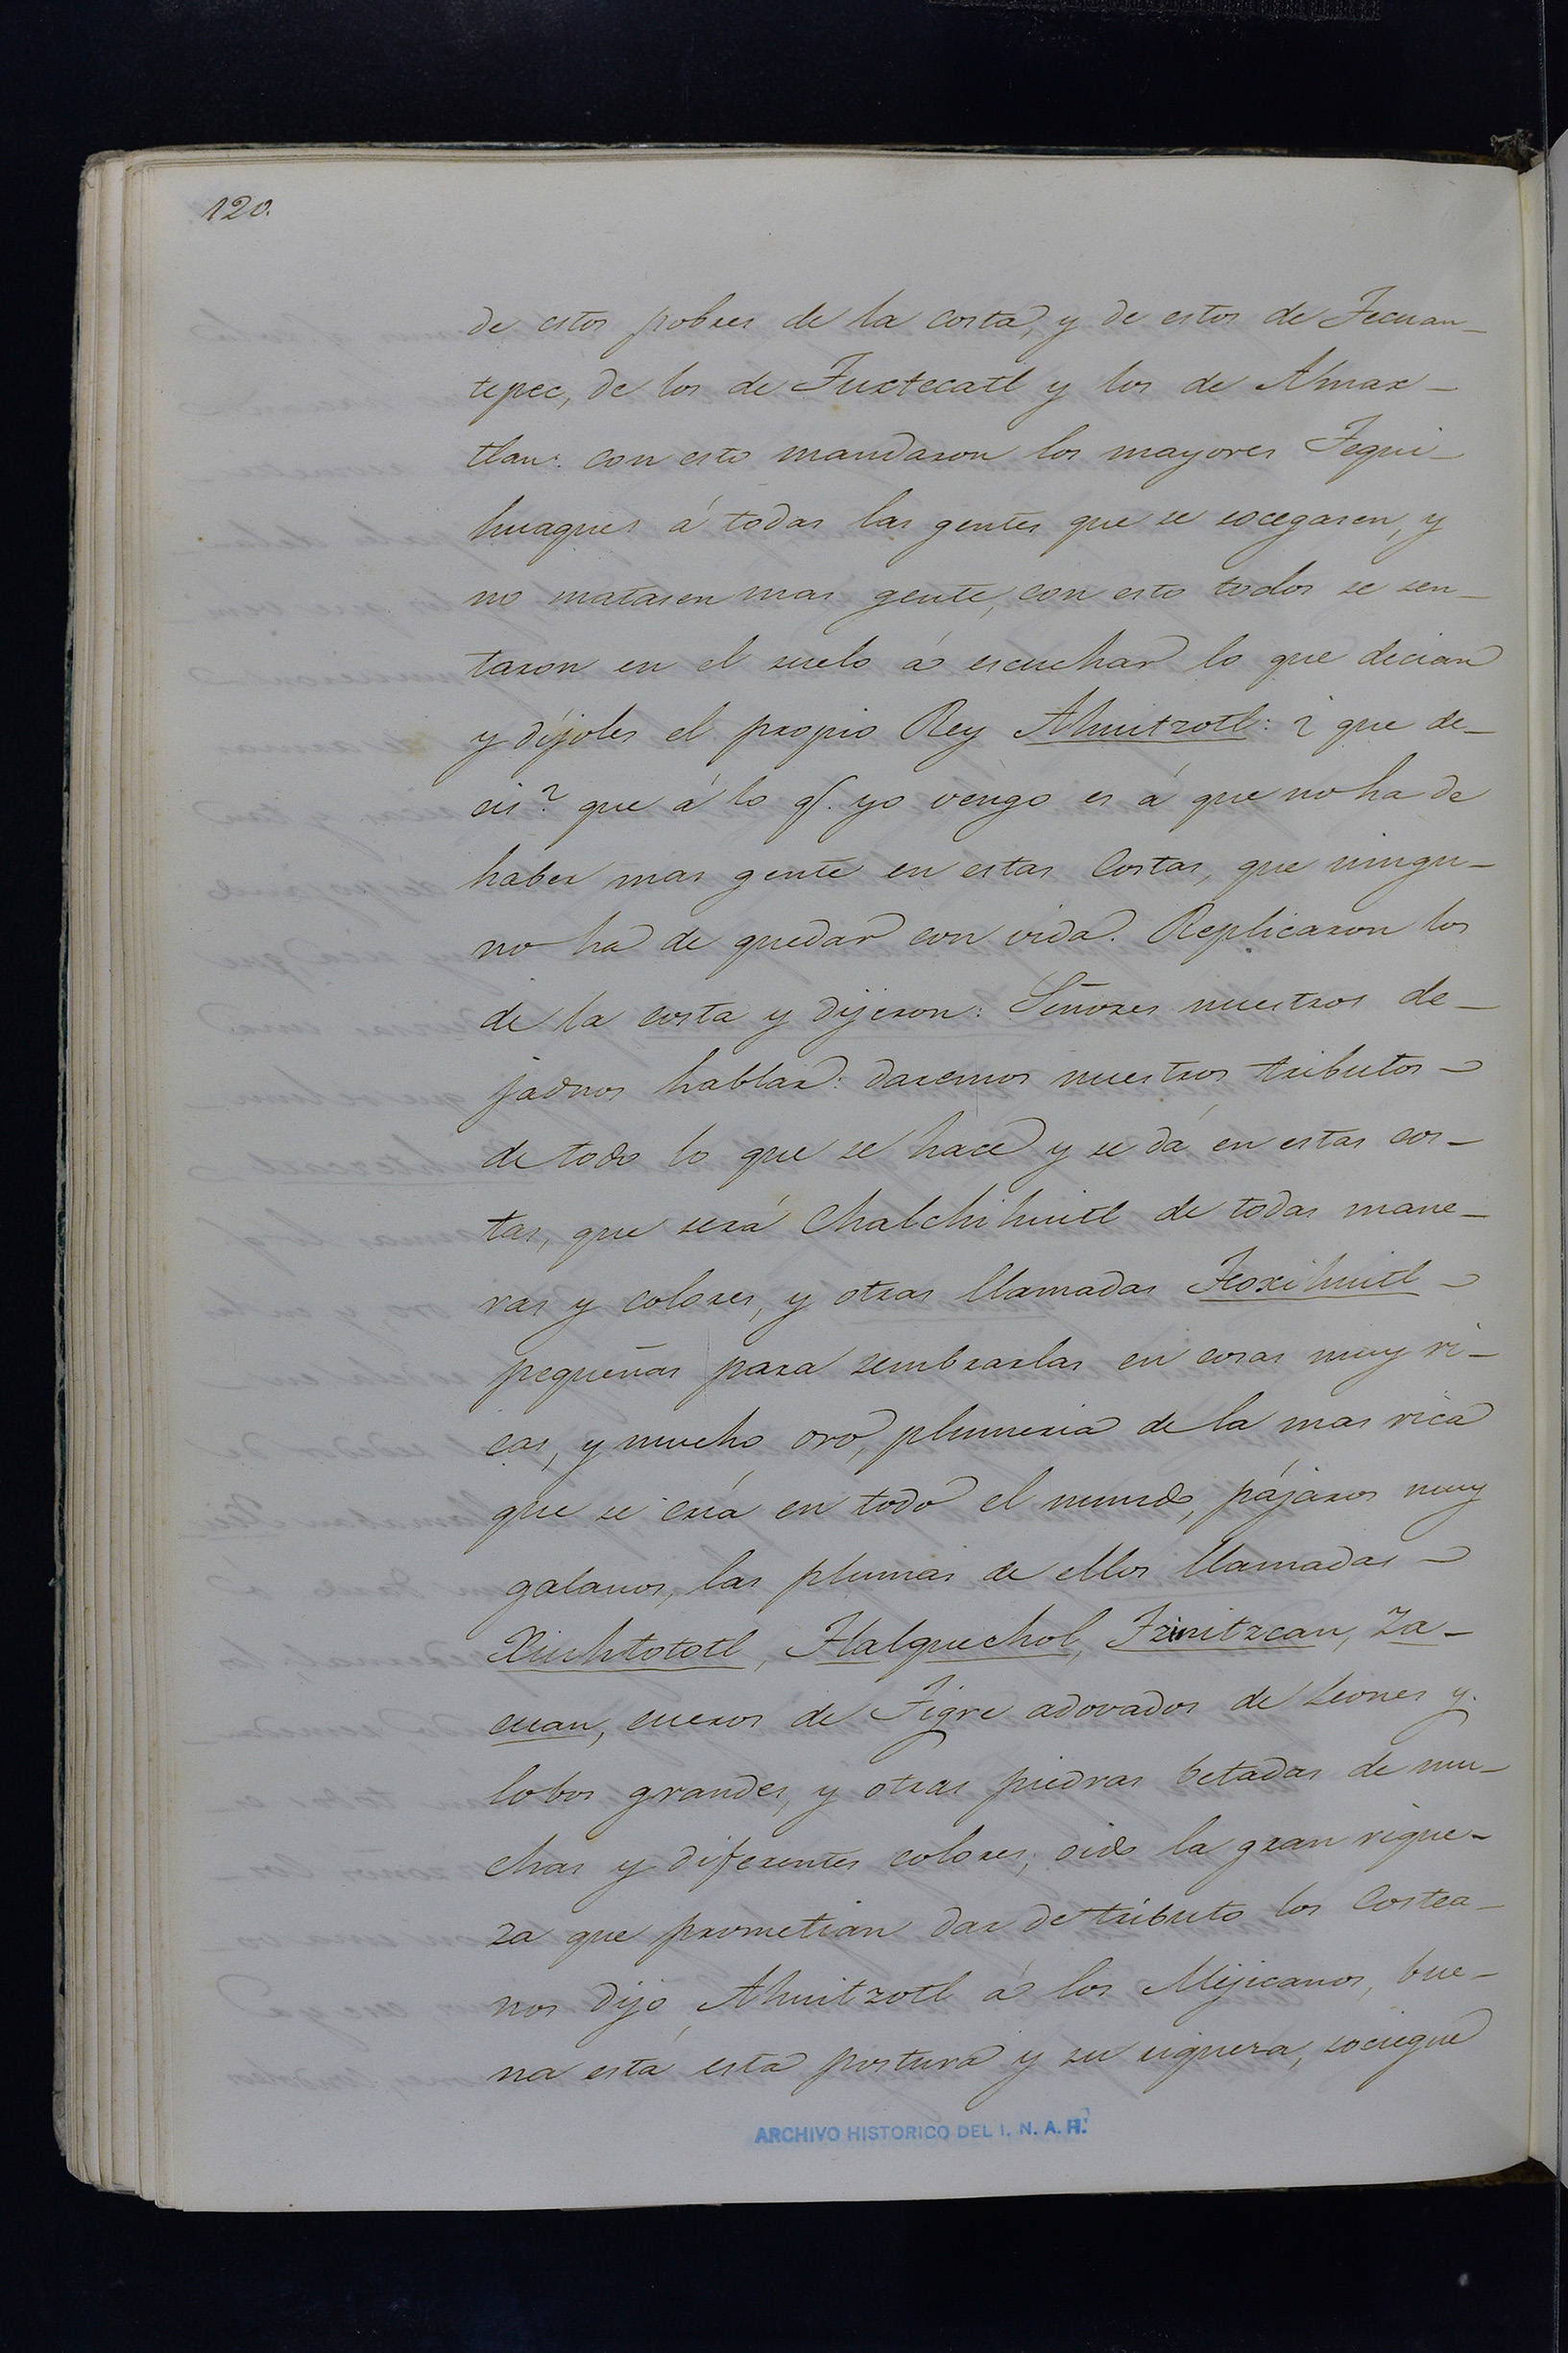 120.
de estos pobres de la costa, y de estos de Tecuan-
tepec, de los de Tuxtecatl y los de Amax-
tlan: con esto mandaron los mayores Tequi-
huaques á todas las gentes que se socegasen, y
no matasen mas gente, con esto todos se sen-
taron en el suelo á escuchar lo que decian
y díjoles el propio Rey Ahuitzotl: ¿que de-
cis? que á lo q.e yo vengo es á que no ha de
haber mas gente en estas Costas, que ningu-
no ha de quedar con vida. Replicaron los
de la costa y dijeron: Señores nuestros de-
jadnos hablar: daremos nuestros tributos
de todo lo que se hace y se dá en estas cos-
tas, que será Chalchihuitl de todas mane-
ras y colores, y otras llamadas Teoxihuitl
pequeñas para sembrarlas en cosas muy ri-
cas, y mucho oro, plumeria de la mas rica
que se cria en todo el mundo, pájaros muy
galanos, las plumas de ellos llamadas
Xiuhtototl, Tlalquechol, Tzinitzcan, Za-
cuan, cueros de Tigre adovados de Leones y
lobos grandes, y otras piedras betadas de mu-
chas y diferentes colores; oido la gran rique-
za que prometian dar de tributo los Costea-
nos dijo Ahuitzotl á los Mejicanos, bue-
na está esta postura y su riqueza, sociegue
ARCHIVO HISTORICO DEL I. N. A. H.